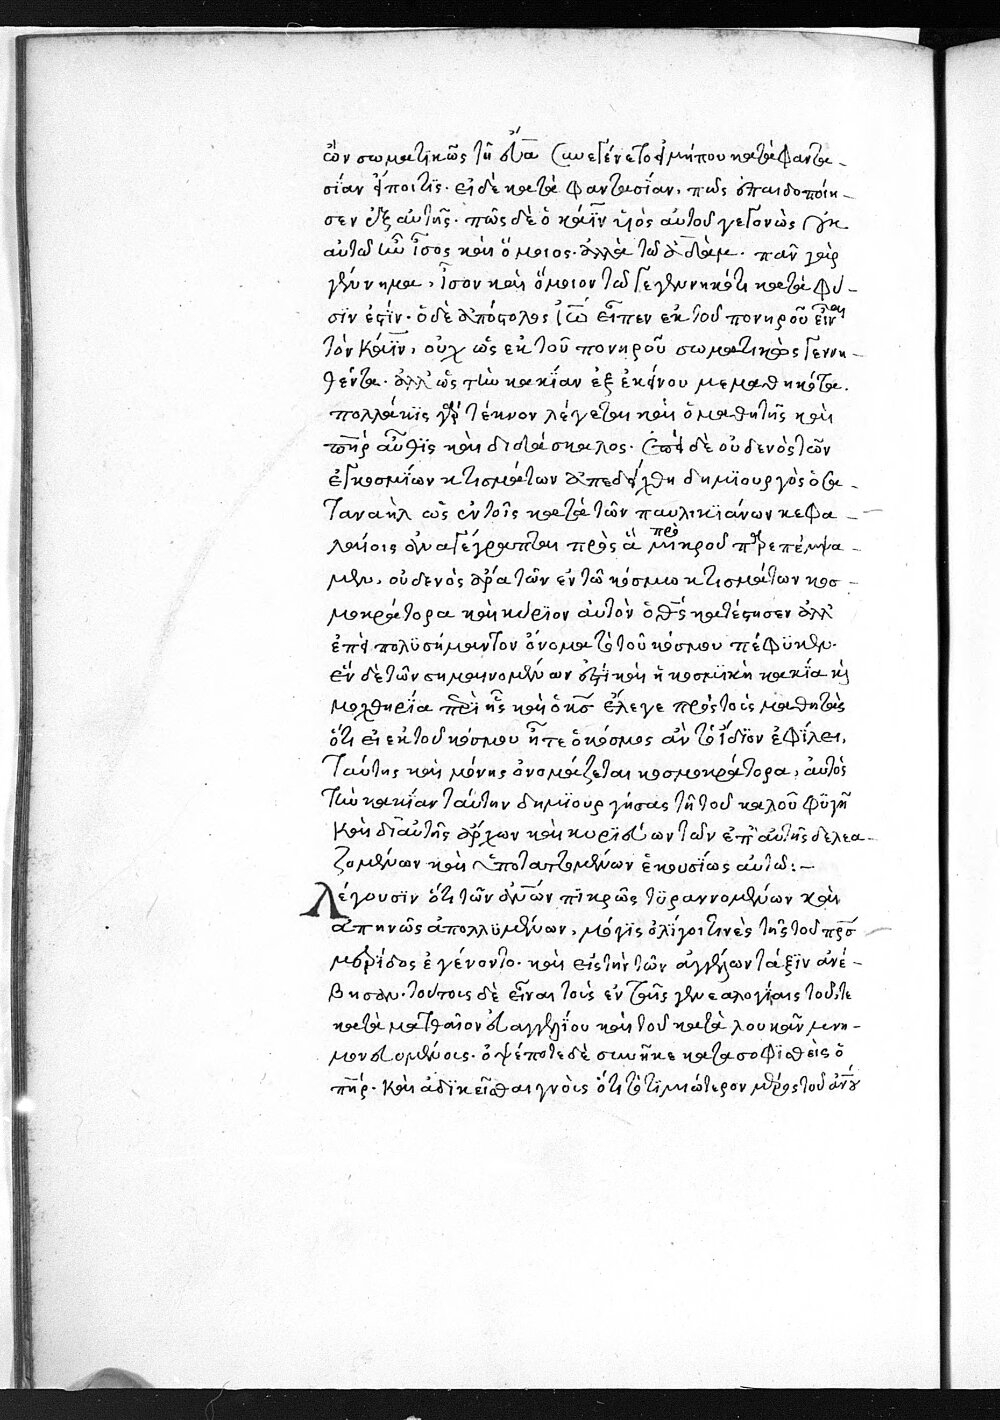 ὢν σωματικῶς τῇ εὔα συνεγένετο εἰ μήπου κατὰ φαντα-
σίαν εἴποι τίς. εἰ δὲ κατὰ φαντασίαν, πῶς ἐπαιδοποίη-
σεν ἐξ αὐτῆς. πῶς δὲ ὁ κάϊν υἱὸς αὐτοῦ γεγονὼς οὐκ
αὐτῶ ἦν ἴσος καὶ ὅμοιος. ἀλλὰ τῶ ἀδάμ. πᾶν γὰρ
γέννημα, ἴσον καὶ ὅμοιον τῶ γεγεννηκότι κατὰ φύ-
σϊν ἐστίν. ὁ δὲ ἀπόστολος ἰω̅ εἶπεν ἐκ τοῦ πονηροῦ εἶναι
τὸν Κάϊν, οὐχ ὡς ἐκ τοῦ πονηροῦ σωματικῶς γεννη-
θέντα. ἀλλ' ὡς τὴν κακίαν ἐξ ἐκείνου μεμαθηκότα.
πολλάκϊς γὰρ τέκνον λέγεται καὶ ὁ μαθητὴς καὶ
πη̅ρ αὖθϊς καὶ διδάσκαλος. ἐπεὶ δὲ οὐδενὸς τῶν
ἐγκοσμίων κτισμάτων ἀπεδείχθη δημϊουργὸς ὁ σα-
ταναὴλ ὡς ἐν τοῖς κατὰ τῶν παυλικϊάνων κεφα-
λαίοις ἀναγέγραπται πρὸς ἃ πρὸ μικροῦ παρεπέμψα-
μεν, οὐδενὸς ἄρα τῶν ἐν τῶ κόσμω κτισμάτων κοσ-
μοκράτορα καὶ κύρϊον αὐτὸν ὁ θς̅ κατέστησεν ἀλλ'
ἐπεὶ πολϋσήμαντον ὄνομα τὸ τοῦ κόσμου πέφϋκεν.
ἓν δὲ τῶν σημαινομένων ἐστὶ καὶ ἡ κοσμϊκὴ κακία καὶ
μοχθηρία περὶ ἧς καὶ ὁ κς̅ ἔλεγε πρὸς τοὺς μαθητὰς
ὅτι εἰ ἐκ τοῦ κόσμου ἦτε ὁ κόσμος ἂν τὸ ἴδϊον ἐφίλει,
ταύτης καὶ μόνης ὀνομάζεται κοσμοκράτορα, αὐτὸς
τὴν κακίαν ταύτην δημϊουργήσας τῇ τοῦ καλοῦ φϋγῇ
Καὶ δι' αὐτῆς ἄρχων καὶ κυρϊεύων τῶν ἐπ' αὐτῆς δελεα-
ζομένων καὶ ὑποταττομένων ἑκουσίως αὐτῶ:—
Λέγουσϊν ὅτι τῶν ἀνω̅ν πϊκρῶς τϋραννομένων καὶ
ἀπηνῶς ἀπολλϋμένων, μόγϊς ὀλίγοι τινὲς τῆς τοῦ πρς̅
μερίδος ἐγένοντο. καὶ εἰς τὴν τῶν ἀγγέλων τάξϊν ἀνέ-
βησαν. τούτοις δὲ εἶναι τοὺς ἐν ταῖς γενεαλογίαις τοῦ τε
κατὰ ματθαῖον εὐαγγελίου καὶ τοῦ κατὰ λουκᾶν μνη-
μονευομένοις. ὀψέποτε δὲ συνῆκε κατασοφϊσθεὶς ὁ
πη̅ρ. Καὶ ἀδϊκεῖσθαι γνοὺς ὅτι τὸ τϊμιώτερον μέρος τοῦ ἀνο̅υ